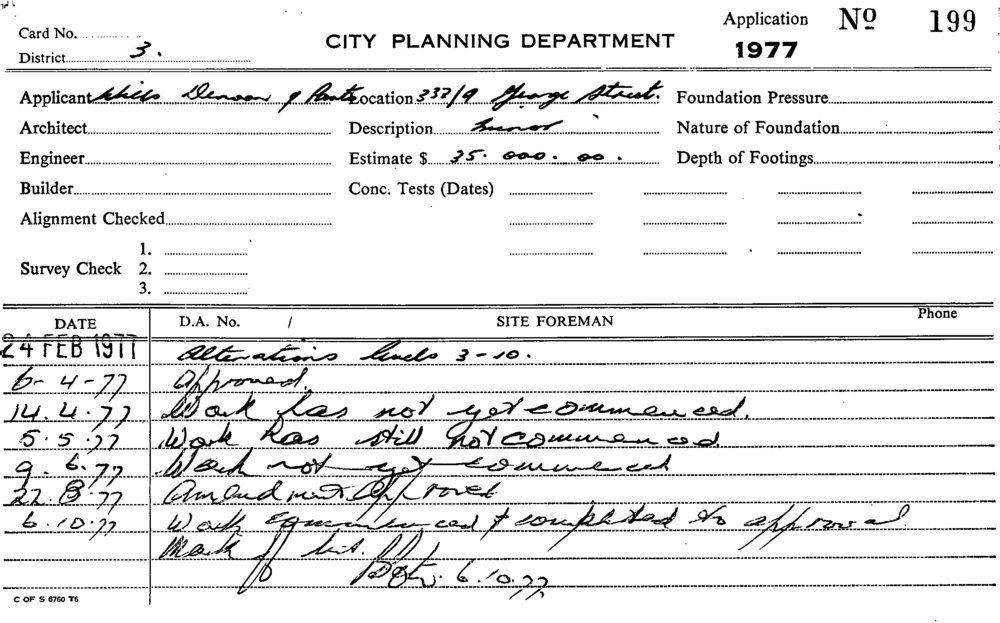 Card No.
Application No 199
CITY PLANNING DEPARTMENT
1977
District 3.
Applicant Wills Denoon & Partn Location 337/9 George Street. Foundation Pressure
Architect Description minor Nature of Foundation
Engineer Estimate $ 35.000.00. Depth of Footings
Builder Conc. Tests (Dates)
Alignment Checked
1.
Survey Check 2.
3.
DATE D.A. No. / SITE FOREMAN Phone
24 FEB 1977 Alterations levels 3-10.
6-4-77 Approved.
14.4.77 Work has not yet commenced.
5.5.77 Work has still not commenced.
9.6.77 Work not yet commenced
22.8.77 Amendment Approved
6.10.77 Work commenced & completed to approval.
Mark off
6.10.77
C OF S 6760 T6